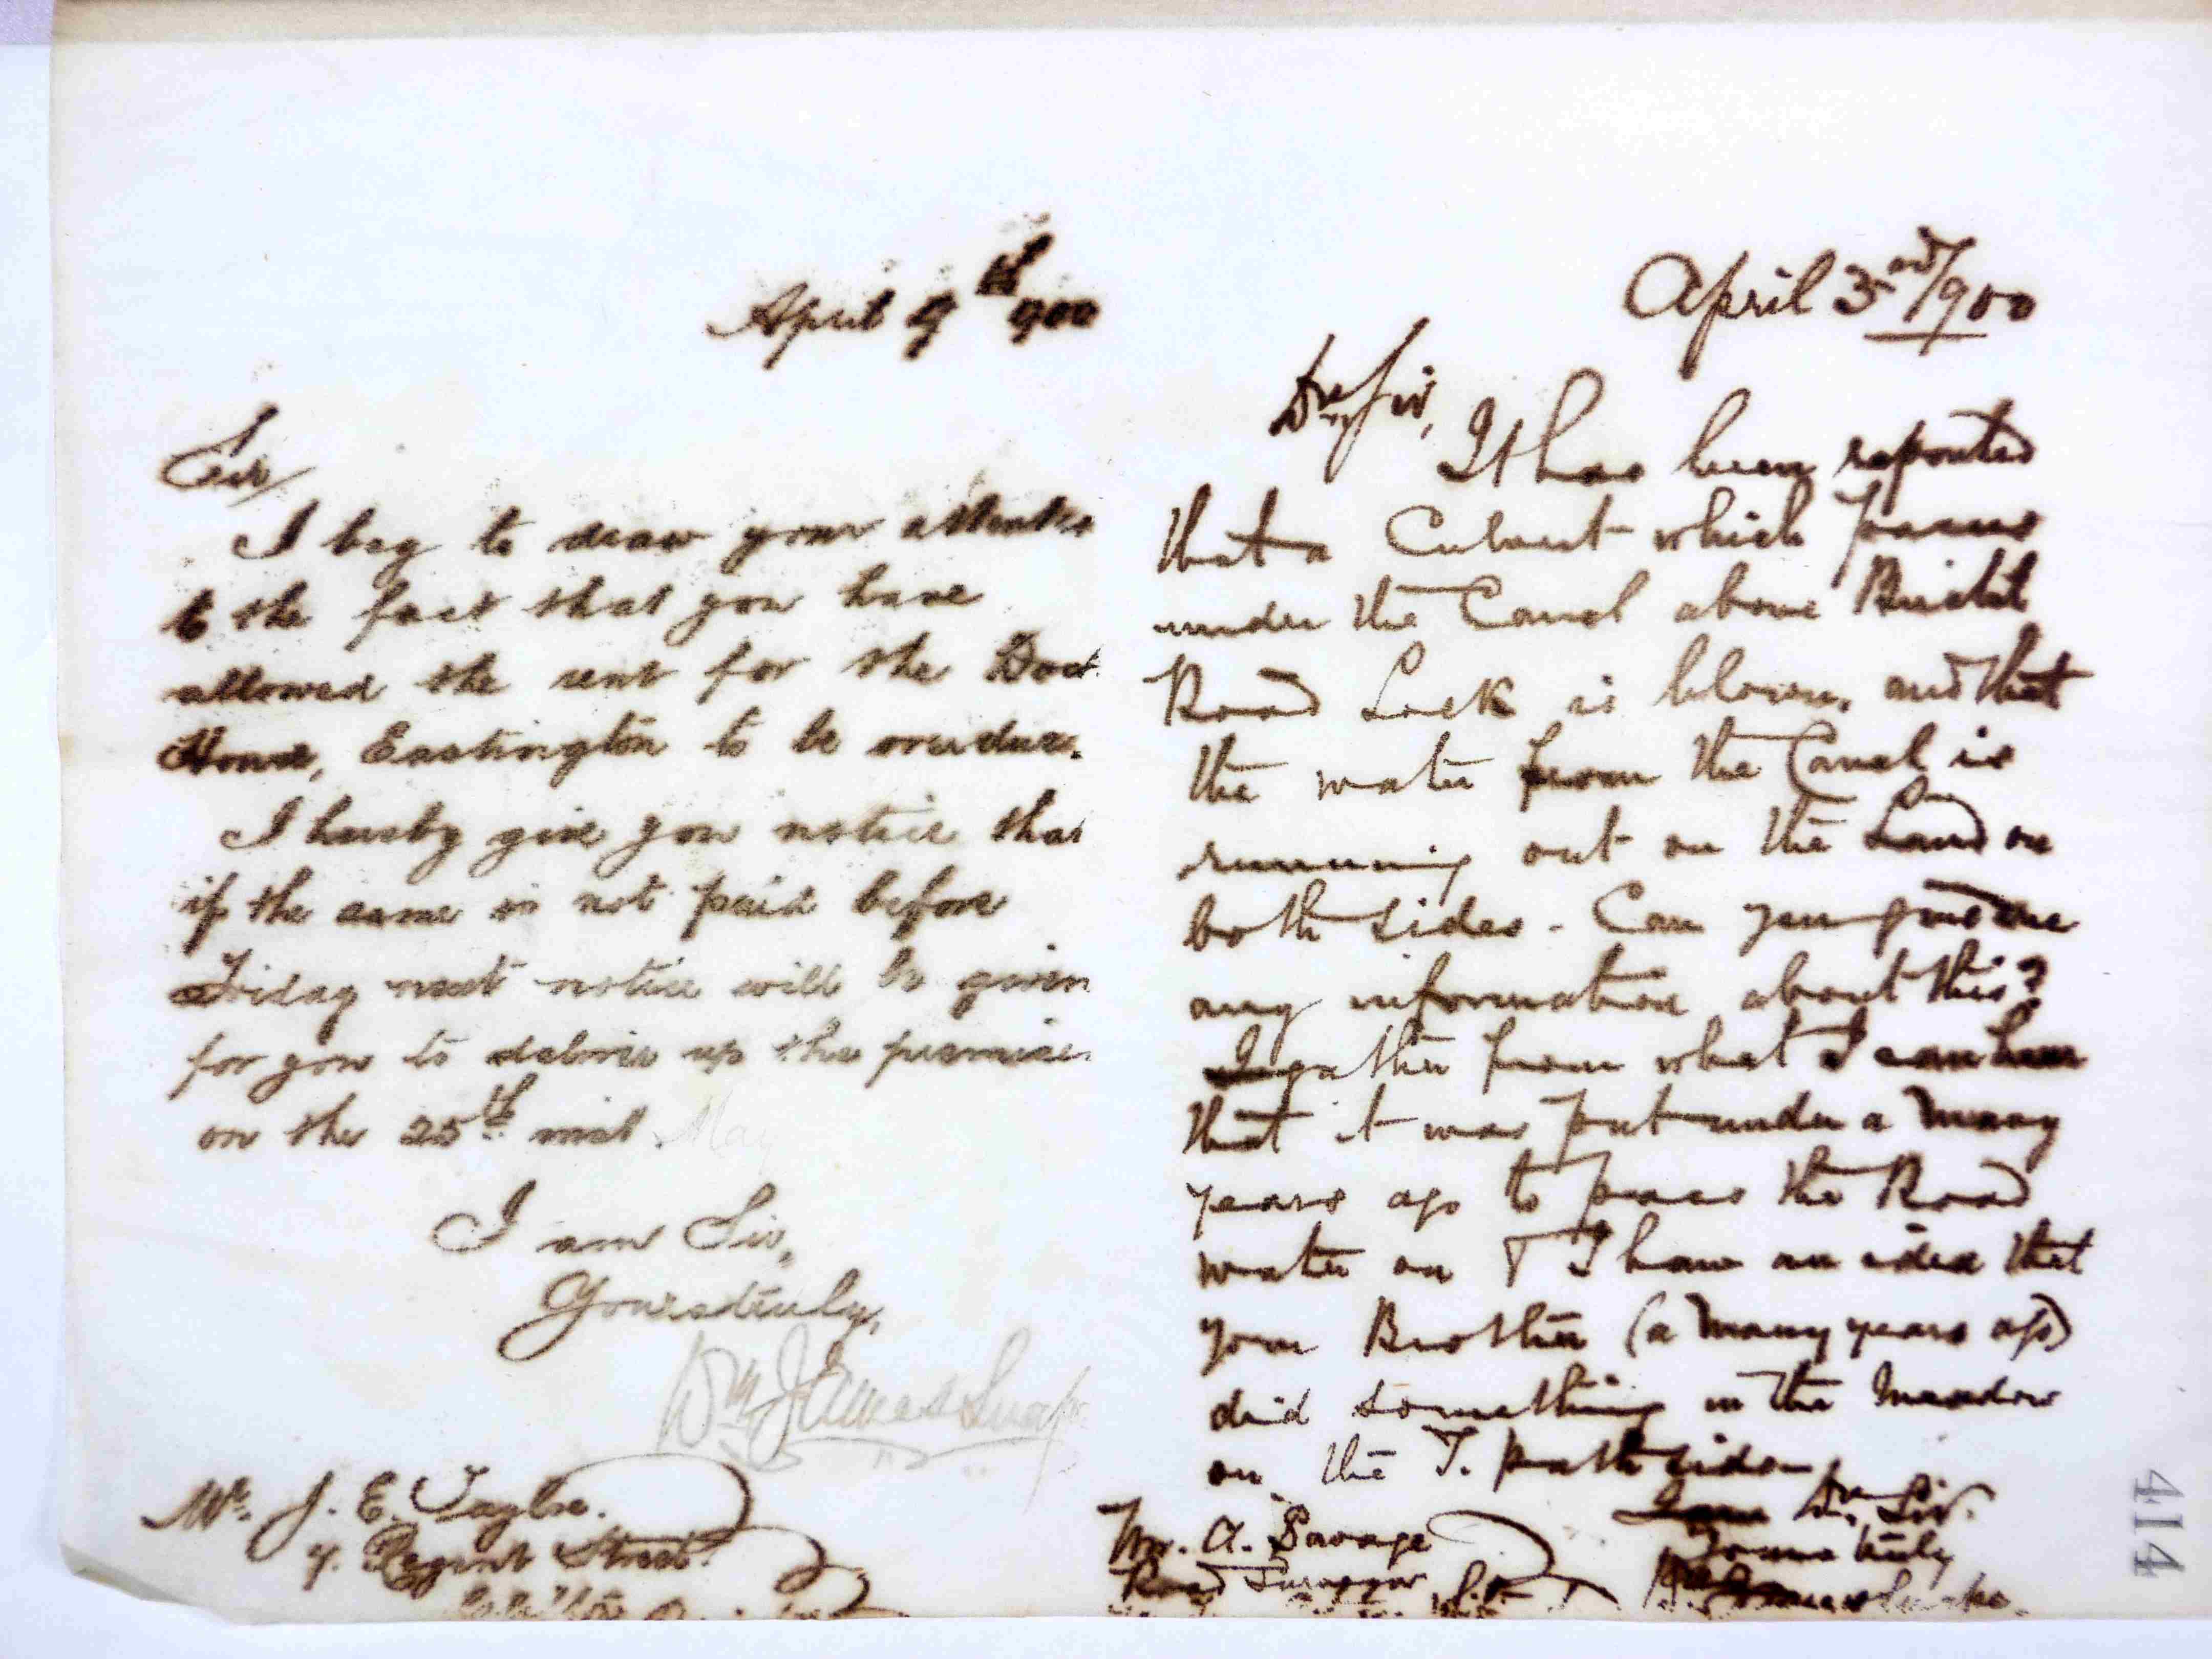 April 9th 1900
Sir/
I beg to draw your attention
to the fact that you have
allowed the rent for the Dock
House, Eastington to be overdue.
I hereby give you notice that
if the same is not paid before
Friday next notice will be given
for you to deliver up the premises
on the 25th inst. May
I am Sir,
Yours truly,
Wm James Snape
Mr. J. E. Taylor.
Regent Street
April 3rd/1900
Dr Sir,
It has been reported
that a Culvert which passes
under the Canal above Bristol
Road Lock is blown, and that
the water from the Canal is
running out on the Land on
both sides - Can you give me
any information about this?
I gather from what I can hear
that it was put under a many
years ago to pass the Road
water on & I have an idea that
your Brother (a many years ago)
did something in the Meadow
on the T. path side
I am Dr. Sir.
Yours truly
Wm James Snape.
Mr. A. Savage
Road Surveyor
414